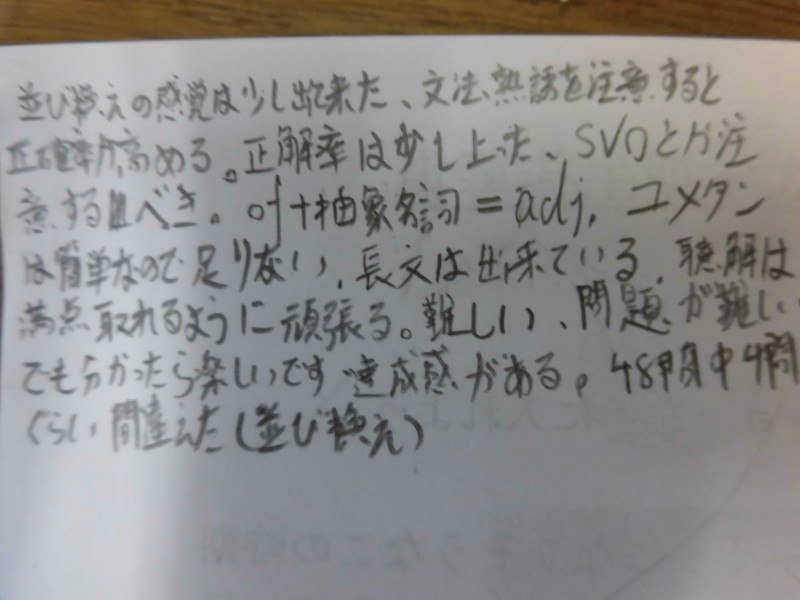 並び換えの感覚は少し出来た、文法、熟語を注意すると
正確率が高める。正解率は少し上った、SVOとか注
意するべき。of+抽象名詞=adj, ユメタン
は簡単なので足りない、長文は出来ている、聴解は
満点取れるように頑張る。難しい、問題が難しい
でも分かったら楽しいです 達成感がある。48問中4問
ぐらい間違えた(並び換え)